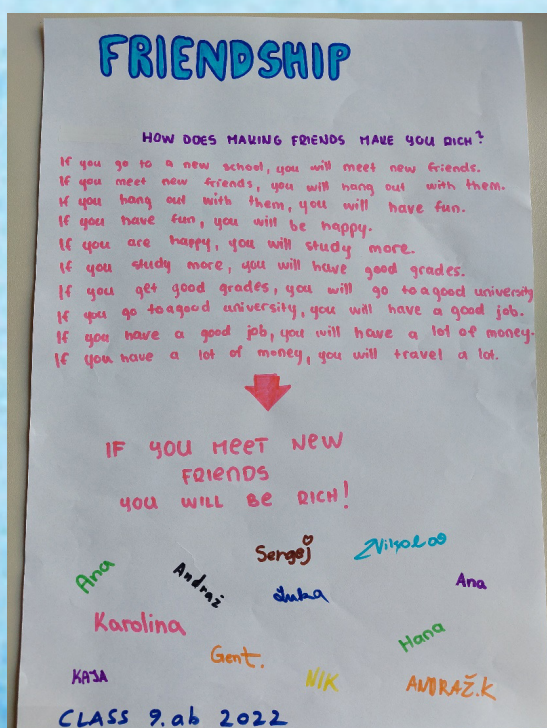 FRIENDSHIP
HOW DOES MAKING FRIENDS MAKE YOU RICH?
If you go to a new school, you will meet new friends.
If you meet new friends, you will hang out with them.
If you hang out with them, you will have fun.
If you have fun, you will be happy.
If you are happy, you will study more.
If you study more, you will have good grades.
If you get good grades, you will go to a good university
If you go to a good university, you will have a good job.
If you have a good job, you will have a lot of money.
If you have a lot of money, you will travel a lot.
IF YOU MEET NEW
FRIENDS
YOU WILL BE RICH!
Sergej
Ana
Andraž
Luka
Ana
Karolina
Hana
Gent.
KAJA
NIK
ANDRAŽ.K
CLASS 9.ab 2022